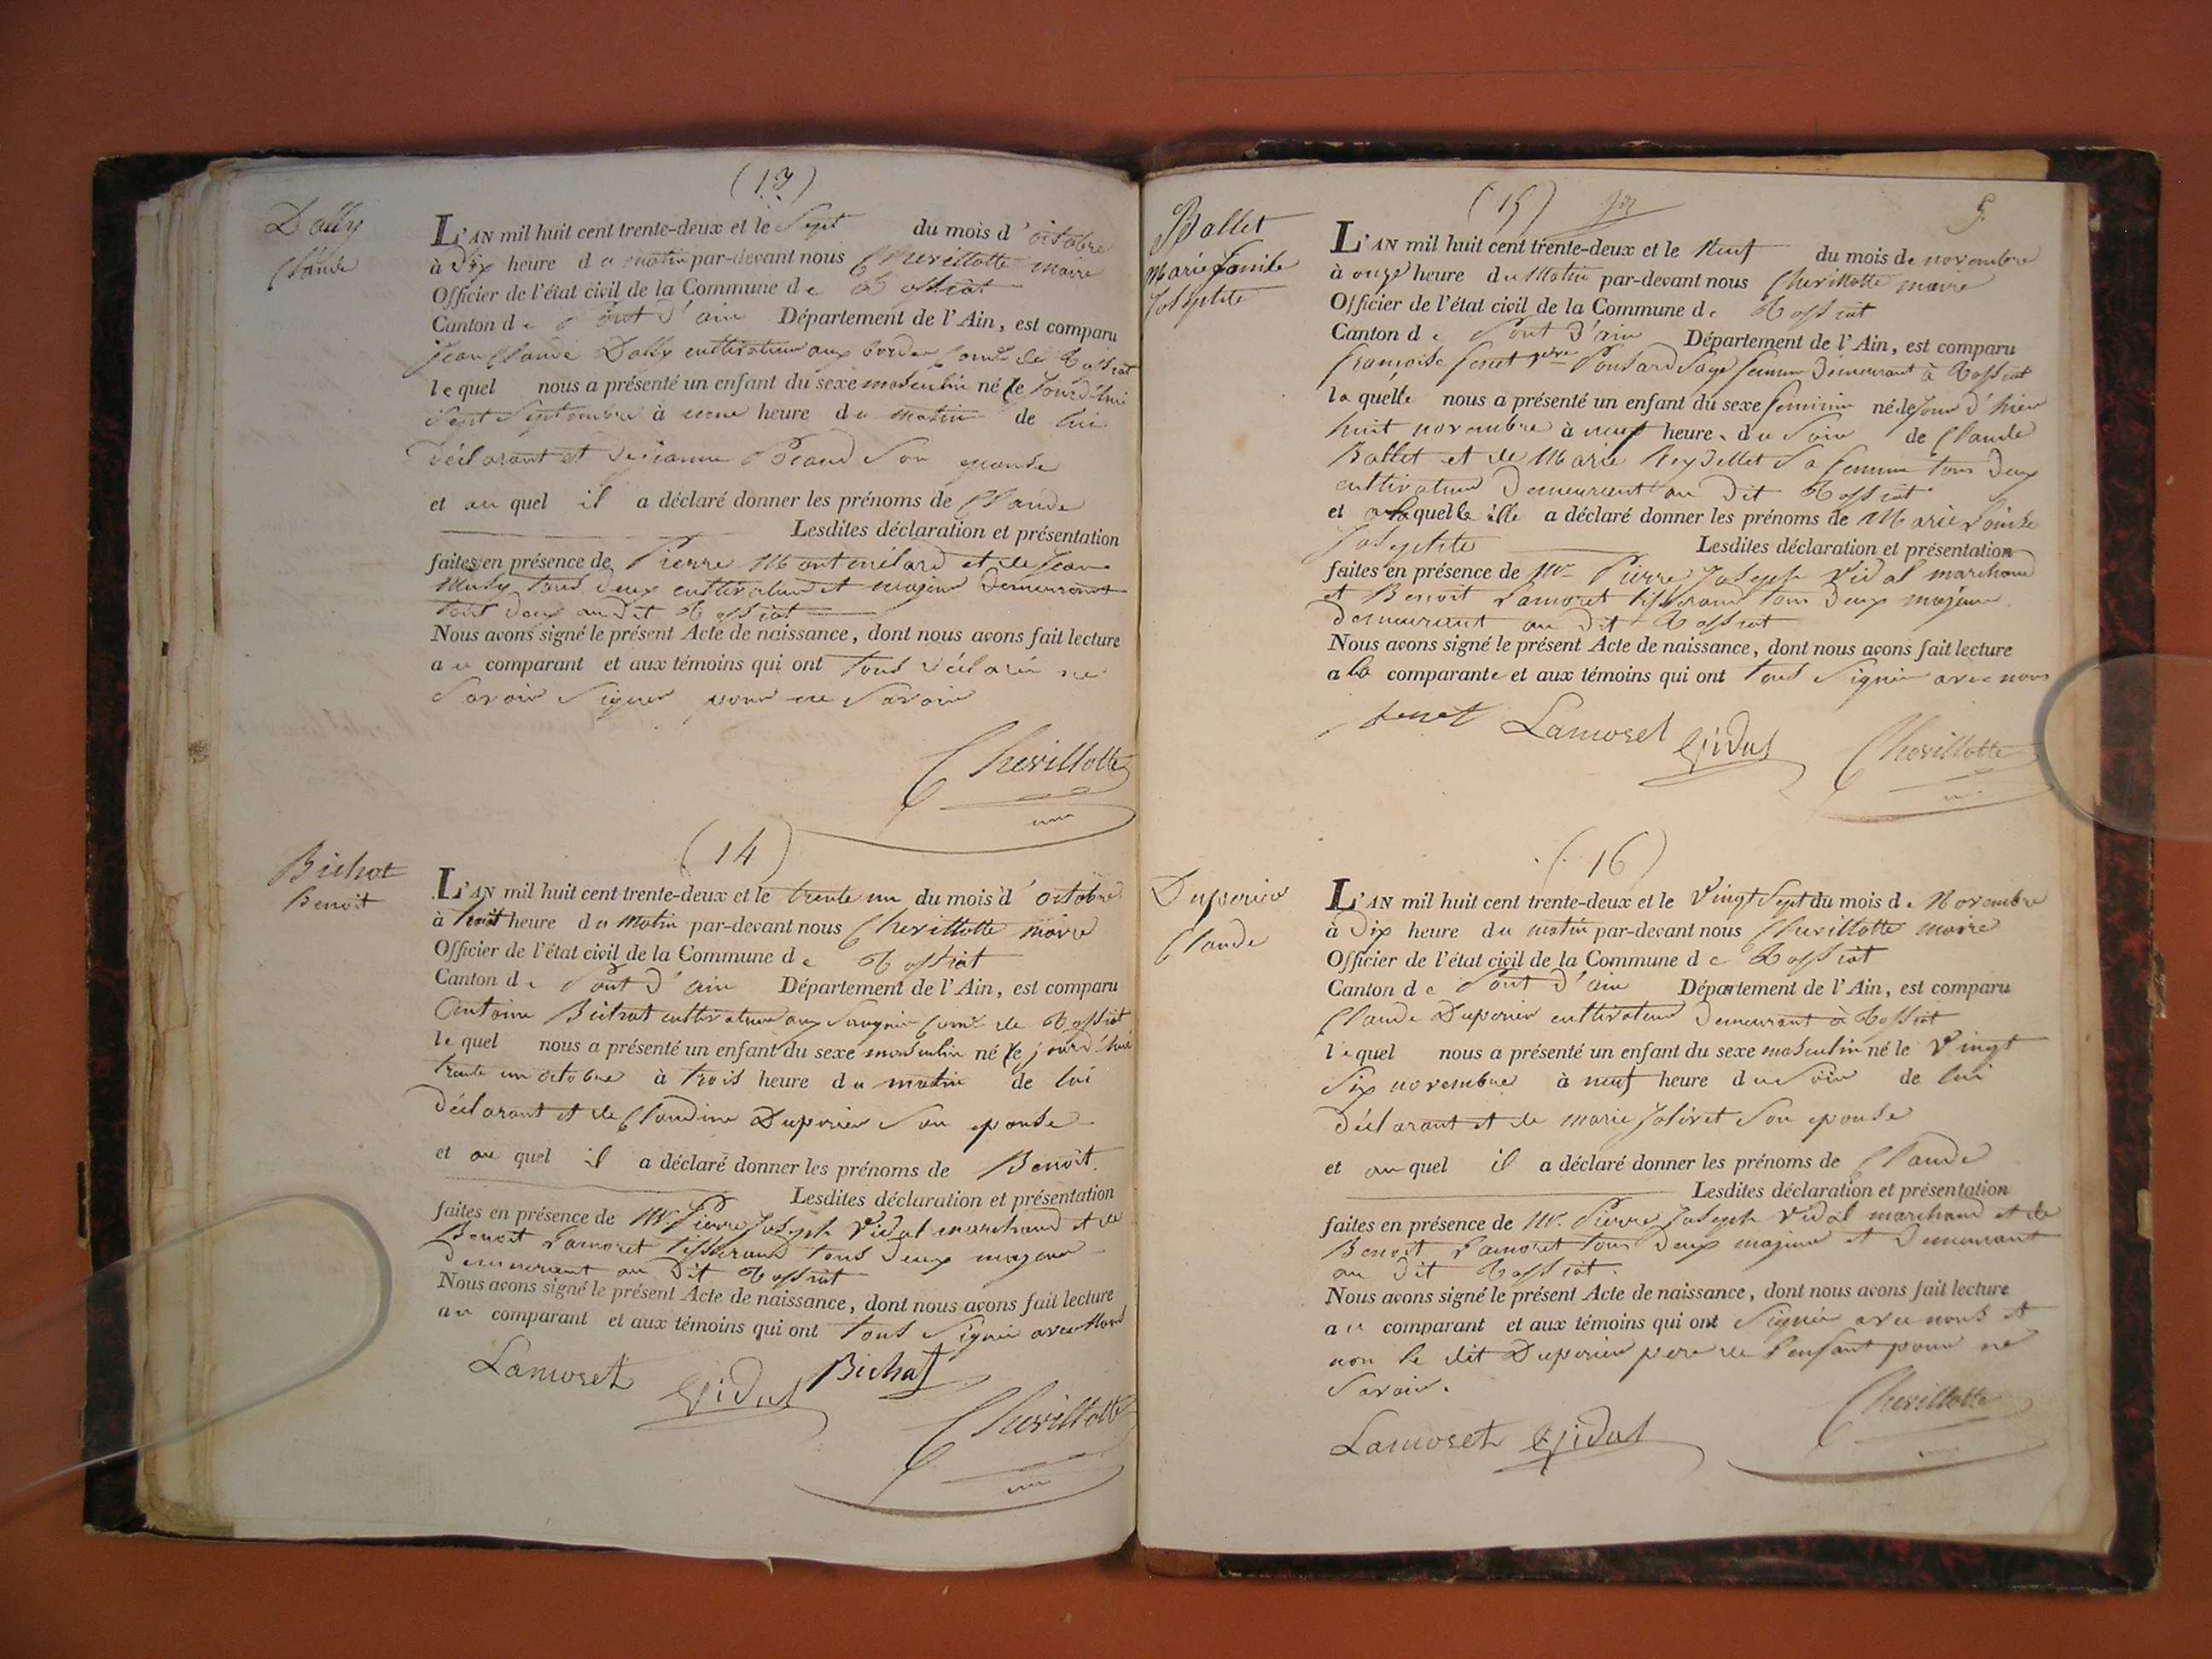 (13)
Dally
Claude
L'AN mil huit cent trente-deux et le Sept du mois d'octobre
à Dix heure du matin par-devant nous Chevillotte maire
Officier de l'état civil de la Commune de Tossiat
Canton de Pont d'ain Département de l'Ain, est comparu
Jean Claude Dally cultivateur aux bordes Com.e de Tossiat
lequel nous a présenté un enfant du sexe masculin né le Jourd'hui
Sept Septembre à une heure du matin de lui
Déclarant et de jeanne Picaud Son epouse
et au quel il a déclaré donner les prénoms de Claude
Lesdites déclaration et présentation
faites en présence de Pierre Montmélard et de Jean
Musy tous deux cultivateur et majeur Demeurant
tous deux au dit Tossiat
Nous avons signé le présent Acte de naissance, dont nous avons fait lecture
au comparant et aux témoins qui ont tous déclaré ne
Savoir Signer pour ne Savoir
Chevillotte
(14)
Bichat
Benoit
L'AN mil huit cent trente-deux et le trente un du mois d'octobre
à huit heure du Matin par-devant nous Chevillotte maire
Officier de l'état civil de la Commune de Tossiat
Canton de Pont d'ain Département de l'Ain, est comparu
Antoine Bichat cultivateur aux Com.e de Tossiat
lequel nous a présenté un enfant du sexe masculin né le jourd'hui
trente un octobre à trois heure du matin de lui
Déclarant et de Claudine Duperier Son epouse
et au quel il a déclaré donner les prénoms de Benoit.
Lesdites déclaration et présentation
faites en présence de Mr. Pierre Joseph Vidal marchand et de
Benoit Lamoret tisserand tous deux majeur
demeurant au Dit Tossiat
Nous avons signé le présent Acte de naissance, dont nous avons fait lecture
au comparant et aux témoins qui ont tous Signé avec Nous
Lamoret Vidal Bichat
Chevillotte
(15) 9
Ballet
Marie Louise
Josephte
L'AN mil huit cent trente-deux et le Neuf du mois de novembre
à onze heure du Matin par-devant nous Chevillotte maire
Officier de l'état civil de la Commune de Tossiat
Canton de Pont d'ain Département de l'Ain, est comparu
françoise feret Ponsard Sage femme Demeurant à Tossiat
laquelle nous a présenté un enfant du sexe feminin né le Jour d'hier
huit novembre à neuf heure du Soir de Claude
Ballet et de Marie Reydellet Sa femme tous deux
cultivateur Demeurant au Dit Tossiat
et a laquelle elle a déclaré donner les prénoms de Marie Louise
Josephte Lesdites déclaration et présentation
faites en présence de Mr. Pierre Joseph Vidal marchand
et Benoit Lamoret tisserand tous deux majeur
demeurant au Dit Tossiat
Nous avons signé le présent Acte de naissance, dont nous avons fait lecture
a la comparante et aux témoins qui ont tous Signé avec nous
feret Lamoret Vidal Chevillotte
(16)
Duperier
Claude
L'AN mil huit cent trente-deux et le Vingt Sept du mois de Novembre
à Dix heure du matin par-devant nous Chevillotte maire
Officier de l'état civil de la Commune de Tossiat
Canton de Pont d'ain Département de l'Ain, est comparu
Claude Duperier cultivateur Demeurant à Tossiat
lequel nous a présenté un enfant du sexe masculin né le Vingt
Six novembre à neuf heure du Soir de lui
Déclarant et de marie Jolivet Son epouse
et au quel il a déclaré donner les prénoms de Claude
Lesdites déclaration et présentation
faites en présence de Mr. Pierre Joseph Vidal marchand et de
Benoit Lamoret tous deux majeur et Demeurant
au Dit Tossiat.
Nous avons signé le présent Acte de naissance, dont nous avons fait lecture
au comparant et aux témoins qui ont Signé avec nous et
non le dit Duperier pere de l'enfant pour ne
Savoir.
Lamoret Vidal Chevillotte